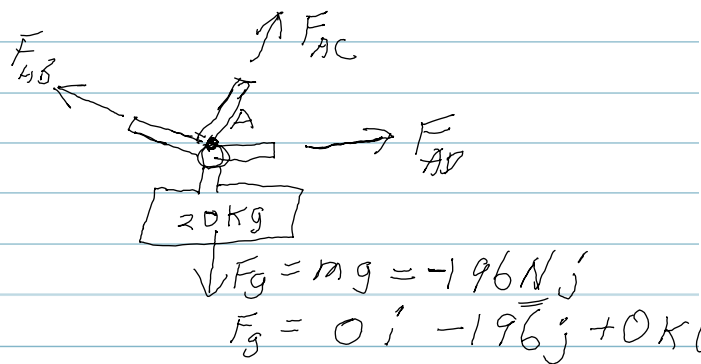 F_AC
F_AB
A
F_AD
20Kg
Fg = mg = -196N j
Fg = 0i -196j +0K(